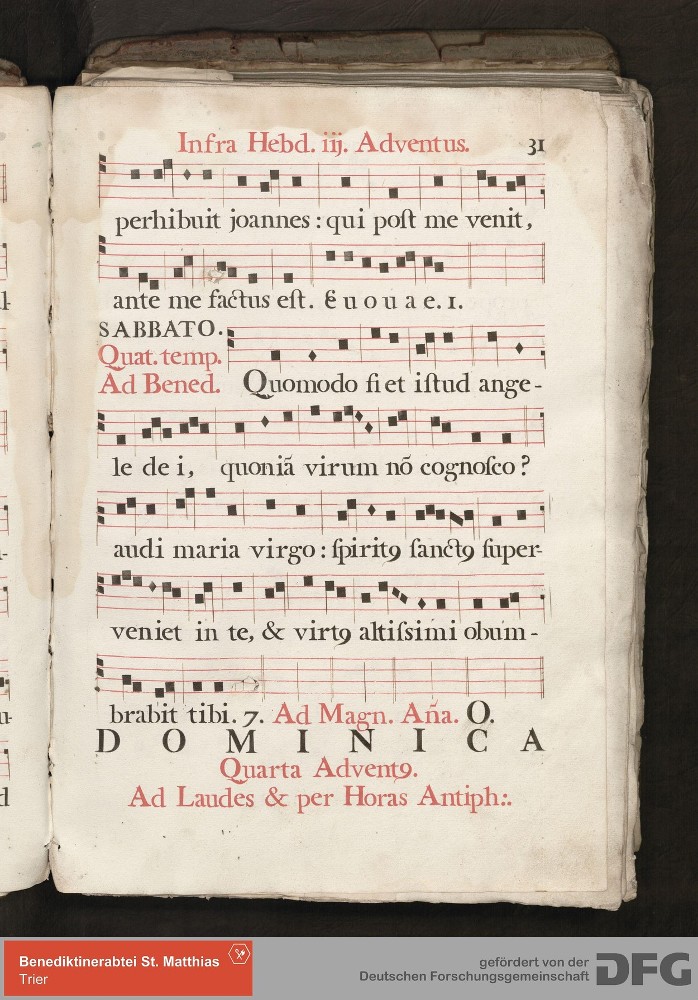 Infra Hebd. iij. Adventus. 31
perhibuit joannes : qui poſt me venit,
ante me factus eſt. E u o u a e. 1.
SABBATO.
Quat. temp.
Ad Bened. Quomodo fiet iſtud ange-
le dei, quoniã virum nõ cognoſco ?
audi maria virgo : ſpiritꝯ ſanctꝯ ſuper-
veniet in te, & virtꝯ altiſsimi obum-
brabit tibi. 7. Ad Magn. Aña. O.
DOMINICA
Quarta Adventꝯ.
Ad Laudes & per Horas Antiph:.
Benediktinerabtei St. Matthias
Trier
gefördert von der
Deutschen Forschungsgemeinschaft DFG